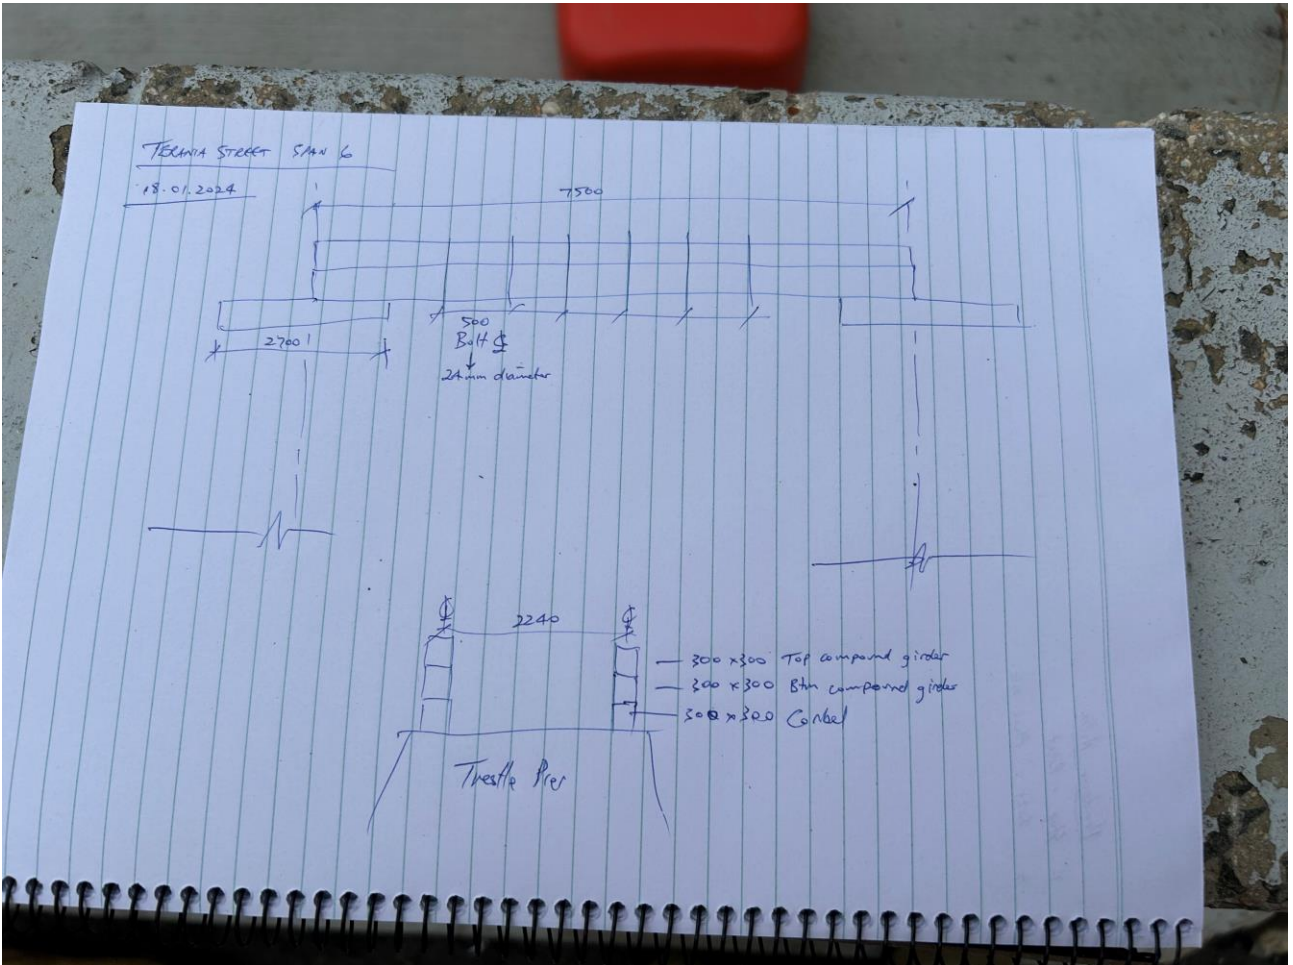 TERANIA STREET SPAN 6
18.01.2024
7500
500
Bolt ℄
2700
24mm diameter
℄ ℄
2240
300 x300 Top compound girder
300 x300 Btm compound girder
300 x300 Corbel
Trestle Pier